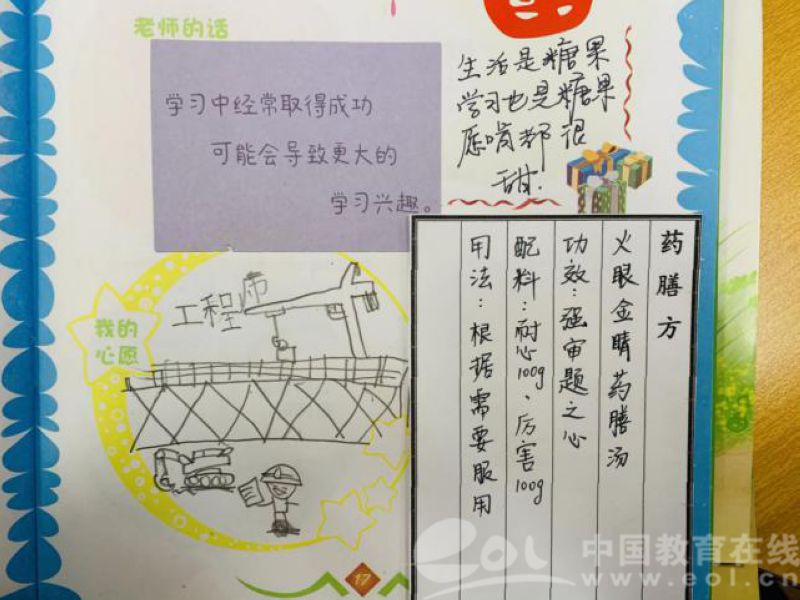 老师的话
学习中经常取得成功
可能会导致更大的
学习兴趣。
生活是糖果
学习也是糖果
愿啃都很
甜.
我的
心愿
工程师
药膳方
火眼金睛药膳汤
功效：强审题之心
配料：耐心100g、厉害100g
用法：根据需要服用
17
eol 中国教育在线
www.eol.cn